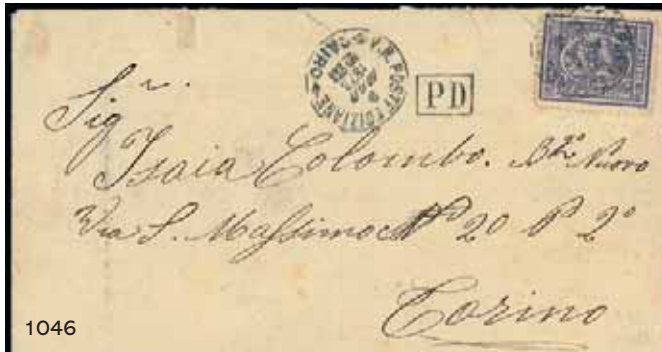 V.R. POSTE EGIZIANE
CAIRO
PD
Sigr.
Isaia Colombo. Bgo Nuovo
Via S. Massimo No 20 P 2o
Torino
1046